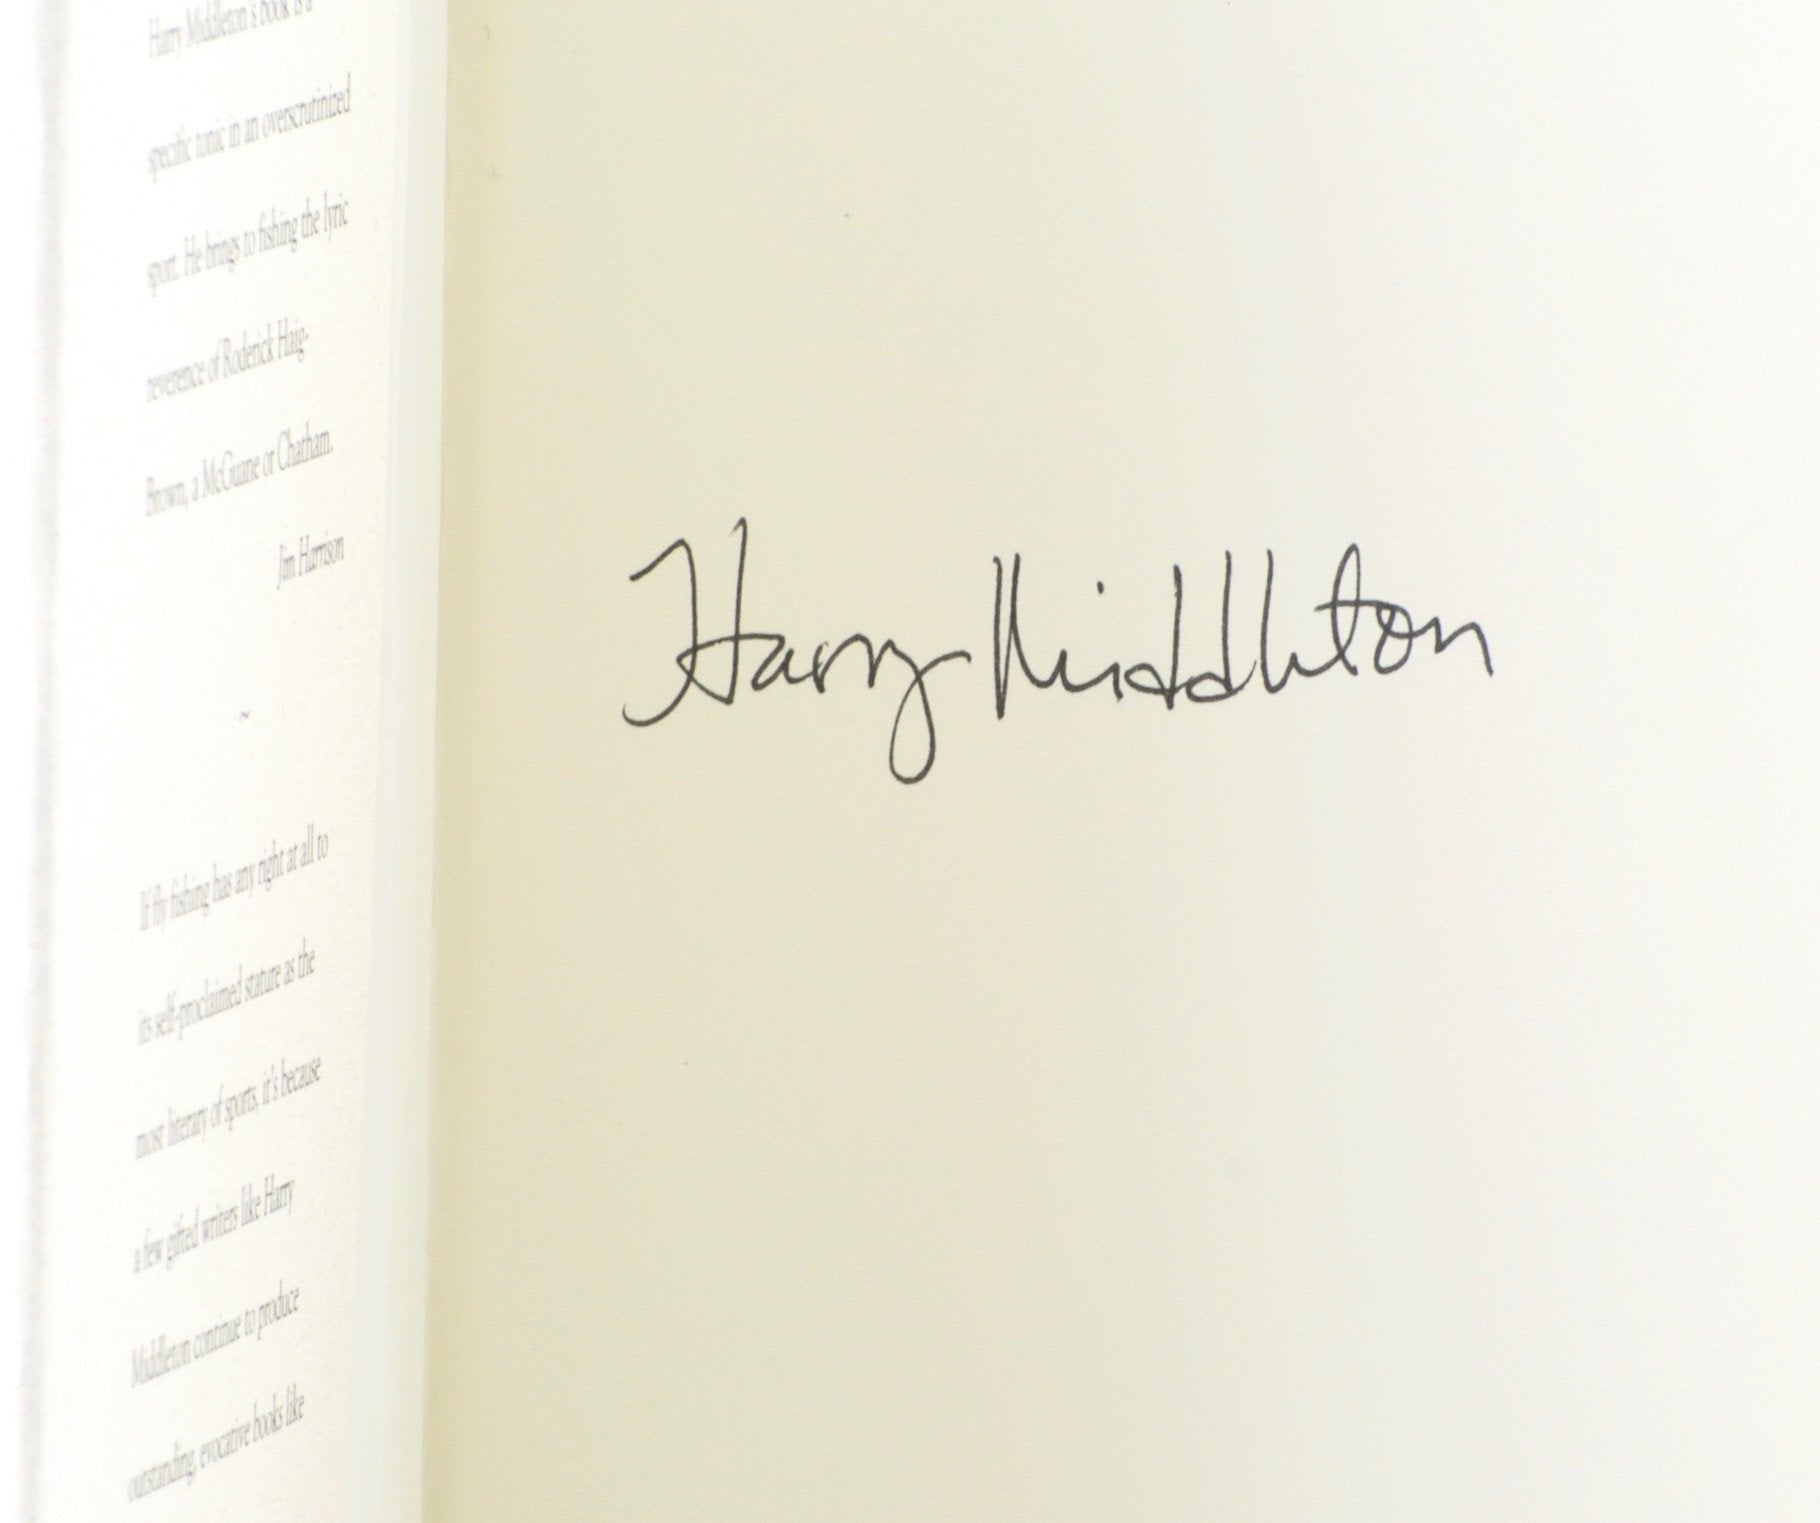 Harry Middleton's book is a
specific tonic in an overscrutinized
sport. He brings to fishing the lyric
reverence of Roderick Haig-
Brown, a McGuane or Chatham.
Jim Harrison
~
If fly fishing has any right at all to
its self-proclaimed stature as the
most literary of sports, it's because
a few gifted writers like Harry
Middleton continue to produce
outstanding, evocative books like
Harry Middleton